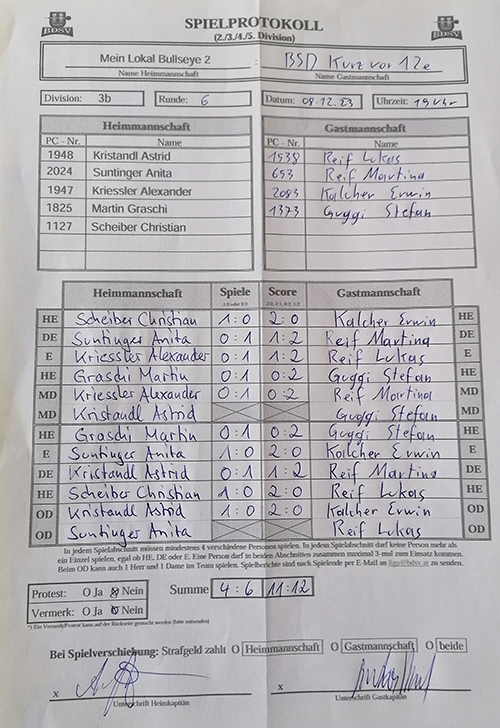 BDSV
SPIELPROTOKOLL
(2./3./4./5. Division)
BDSV
Mein Lokal Bullseye 2 : BSD Kurz vor 12e
Name Heimmannschaft Name Gastmannschaft
Division: 3b Runde: 6 Datum: 09.12.23 Uhrzeit: 19 Uhr
Heimmannschaft Gastmannschaft
PC - Nr. Name PC - Nr. Name
1948 Kristandl Astrid 1538 Reif Lukas
2024 Suntinger Anita 653 Reif Martina
1947 Kriessler Alexander 2083 Kalcher Erwin
1825 Martin Graschi 1373 Guggi Stefan
1127 Scheiber Christian
Heimmannschaft Spiele Score Gastmannschaft
1:0 oder 0:1 2:0, 2:1, 0:2, 1:2
HE Scheiber Christian 1:0 2:0 Kalcher Erwin HE
DE Suntinger Anita 0:1 1:2 Reif Martina DE
E Kriessler Alexander 0:1 1:2 Reif Lukas E
HE Graschi Martin 0:1 0:2 Guggi Stefan HE
MD Kriessler Alexander 0:1 0:2 Reif Martina MD
MD Kristandl Astrid Guggi Stefan MD
HE Graschi Martin 0:1 0:2 Guggi Stefan HE
E Suntinger Anita 1:0 2:0 Kalcher Erwin E
DE Kristandl Astrid 0:1 1:2 Reif Martina DE
HE Scheiber Christian 1:0 2:0 Reif Lukas HE
OD Kristandl Astrid 1:0 2:0 Kalcher Erwin OD
OD Suntinger Anita Reif Lukas OD
In jedem Spielabschnitt müssen mindestens 4 verschiedene Personen spielen. In jedem Spielabschnitt darf keine Person mehr als
ein Einzel spielen, egal ob HE, DE oder E. Eine Person darf in beiden Abschnitten zusammen maximal 3-mal zum Einsatz kommen.
Beim OD kann auch 1 Herr und 1 Dame im Team spielen. Spielberichte sind nach Spielende per E-Mail an liga@bdsv.at zu senden.
Protest: O Ja O Nein Summe 4:6 11:12
Vermerk: O Ja O Nein
*) Ein Vermerk/Protest kann auf der Rückseite gemacht werden (bitte mitsenden)
Bei Spielverschiebung: Strafgeld zahlt O Heimmannschaft O Gastmannschaft O beide
x x
Unterschrift Heimkapitän Unterschrift Gastkapitän